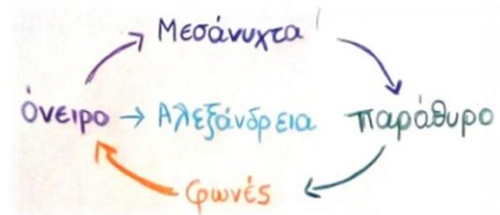 Μεσάνυχτα
όνειρο → Αλεξάνδρεια παράθυρο
φωνές